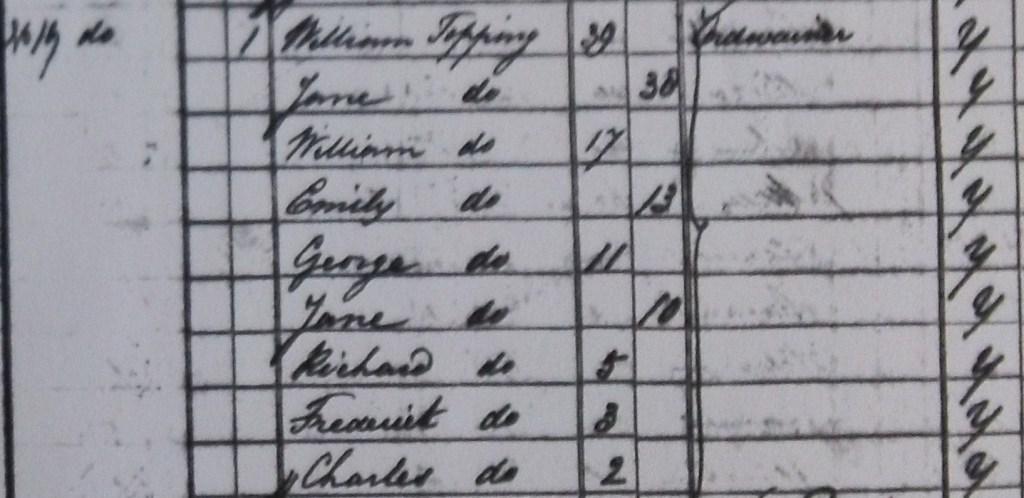 do 1 William Topping 39 Cordwainer y
Jane do 38 y
William do 17 y
Emily do 13 y
George do 11 y
Jane do 10 y
Richard do 5 y
Frederick do 3 y
Charles do 2 y